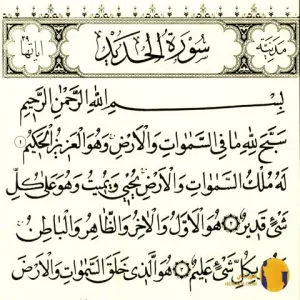 مدنية سورة الحديد اياتها
بسم الله الرحمن الرحيم
سبح لله ما في السموات والارض وهو العزيز الحكيم ۱
له ملك السموات والارض يحيي ويميت وهو على كل
شيء قدير ۲ هو الاول والاخر والظاهر والباطن
كل شيء عليم ۳ هو الذي خلق السموات والارض